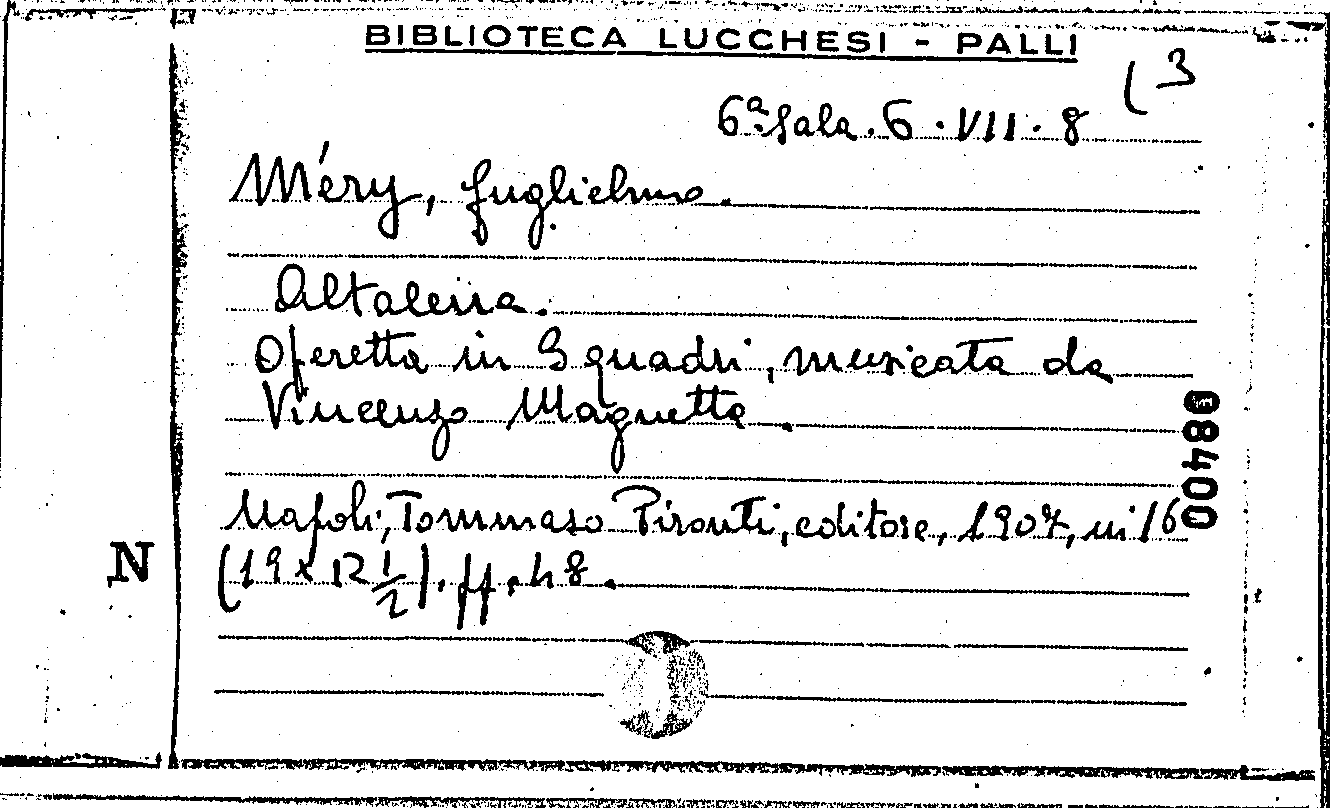 BIBLIOTECA LUCCHESI - PALLI
6ª Sala. 6. VII. 8 (3
Méry, Guglielmo.
Altalena.
Operetta in 3 quadri, musicata da
Vincenzo Magnetta.
Napoli, Tommaso Pironti, editore, 1907, in 16
(19 x 12 1/2). pp. 48.
N
08400